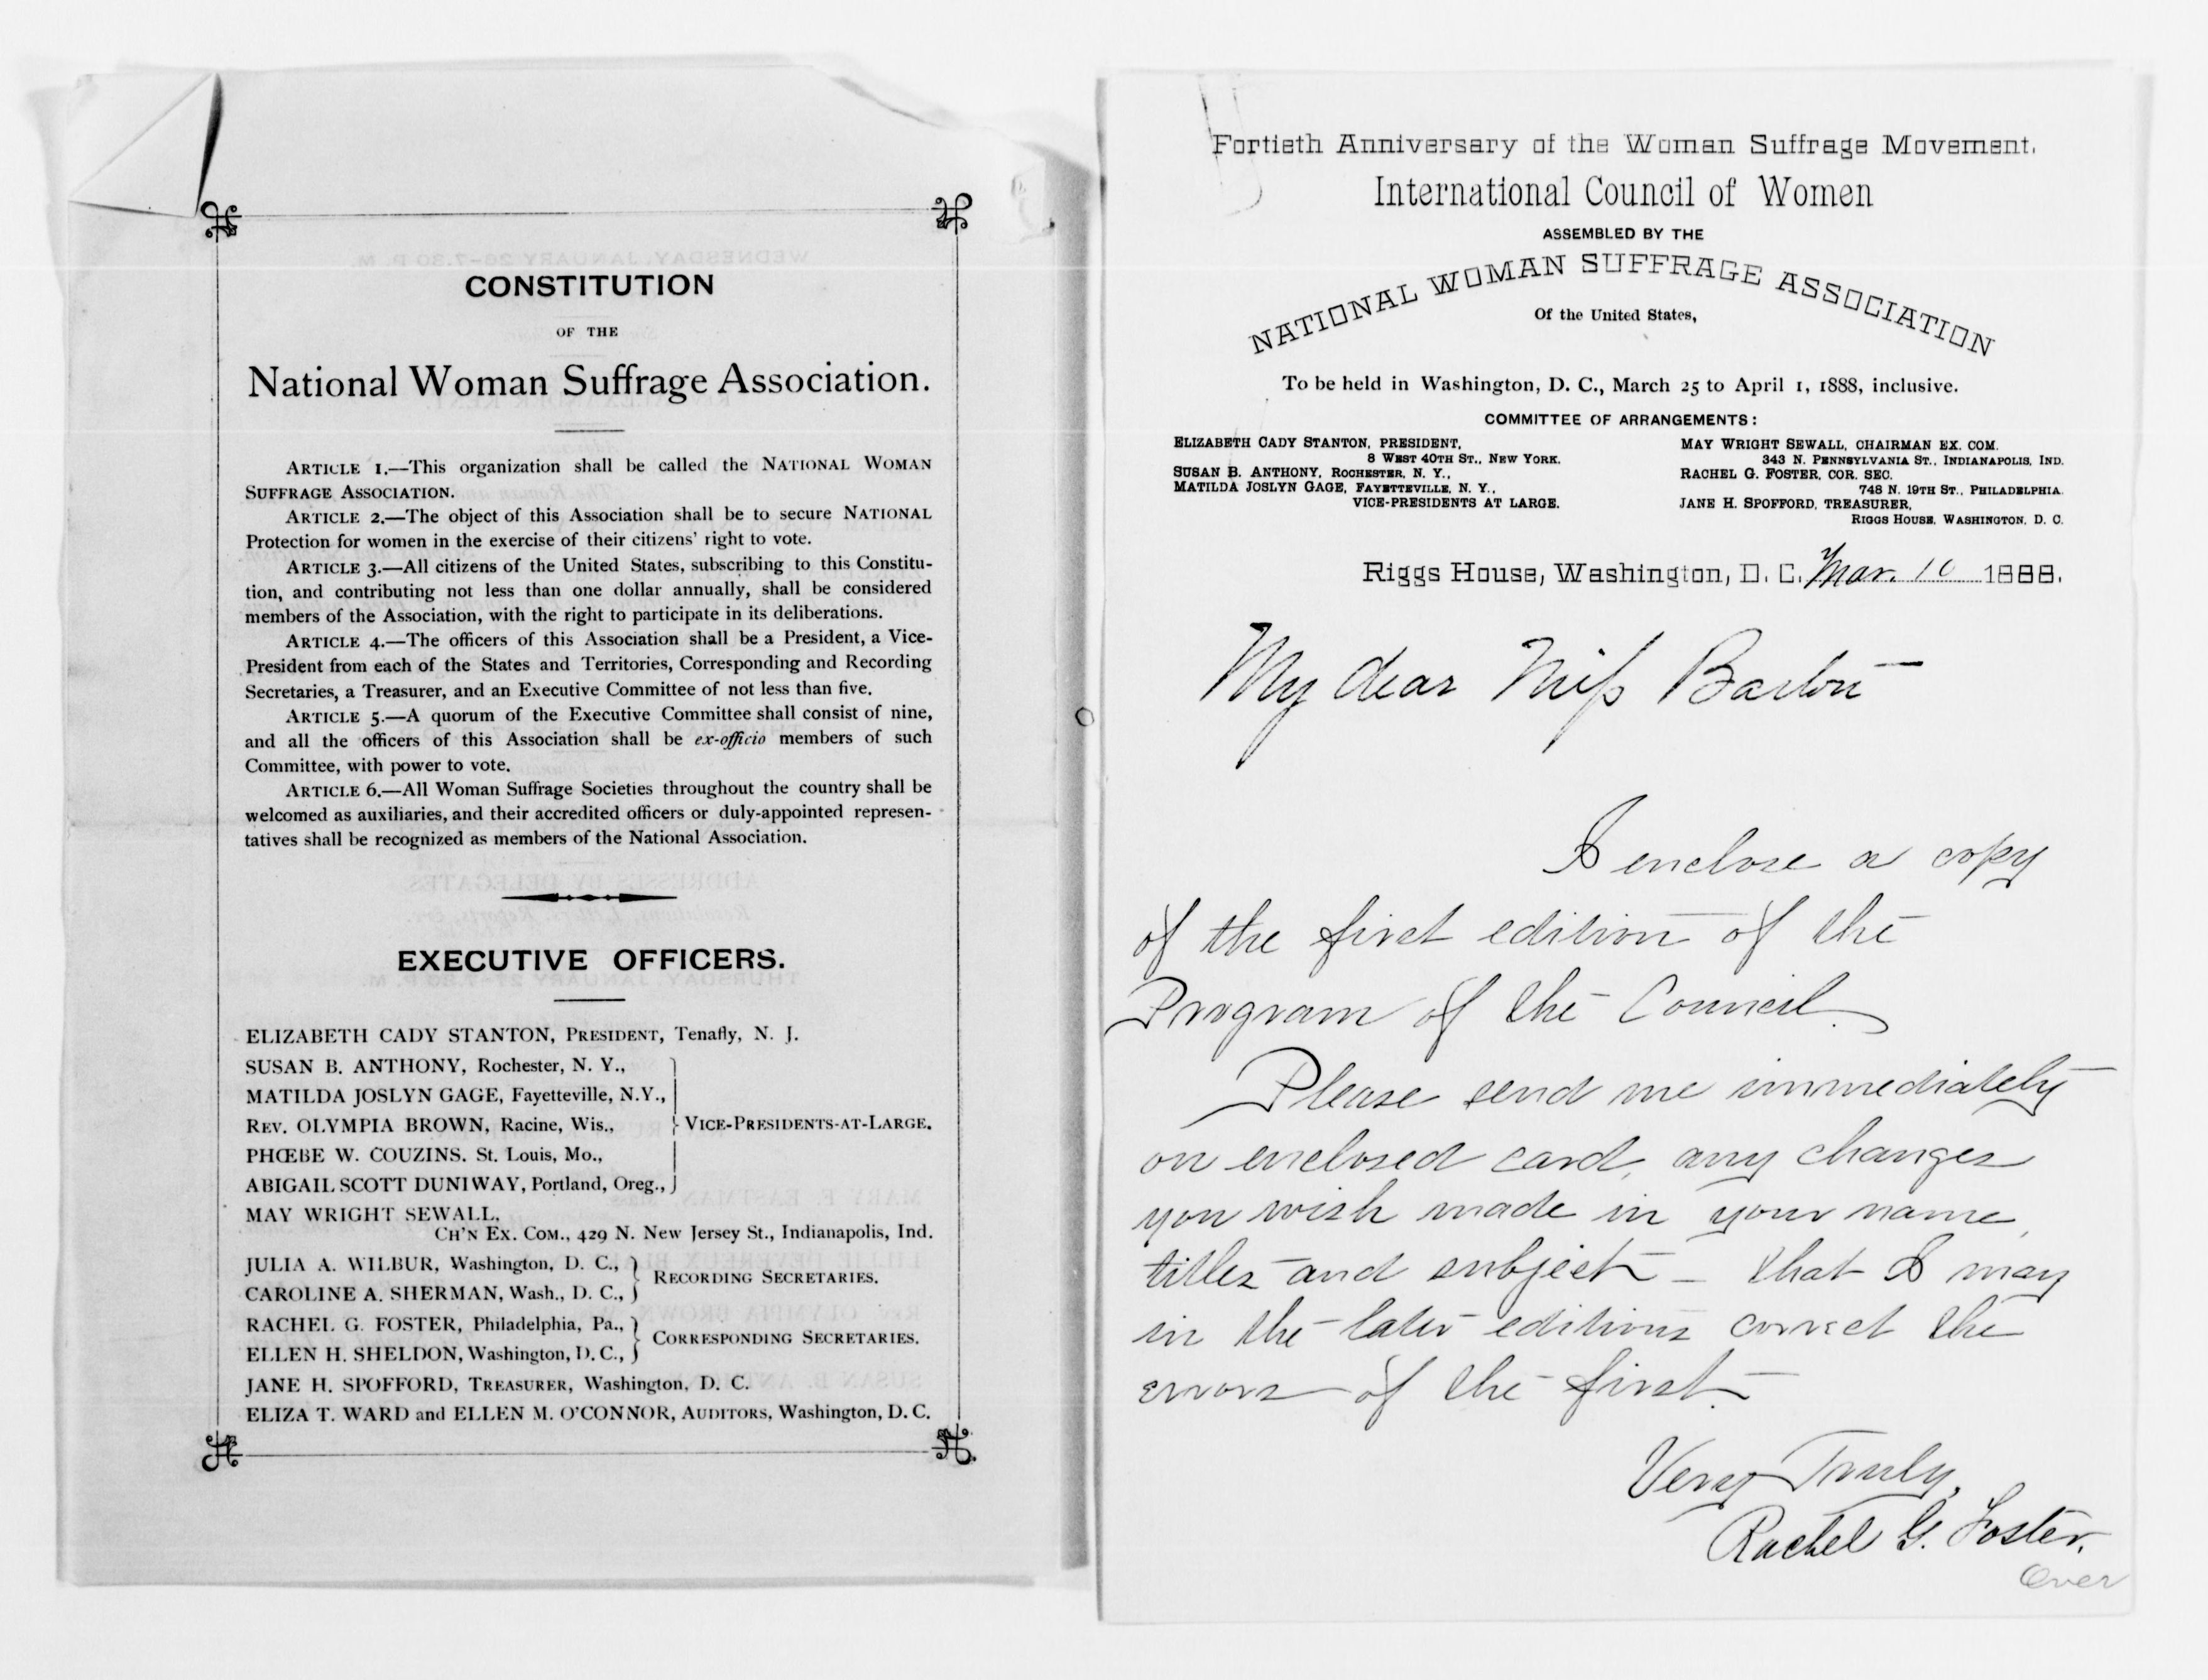 CONSTITUTION
OF THE
National Woman Suffrage Association.
ARTICLE 1.—This organization shall be called the NATIONAL WOMAN
SUFFRAGE ASSOCIATION.
ARTICLE 2.—The object of this Association shall be to secure NATIONAL
Protection for women in the exercise of their citizens' right to vote.
ARTICLE 3.—All citizens of the United States, subscribing to this Constitu-
tion, and contributing not less than one dollar annually, shall be considered
members of the Association, with the right to participate in its deliberations.
ARTICLE 4.—The officers of this Association shall be a President, a Vice-
President from each of the States and Territories, Corresponding and Recording
Secretaries, a Treasurer, and an Executive Committee of not less than five.
ARTICLE 5.—A quorum of the Executive Committee shall consist of nine,
and all the officers of this Association shall be ex-officio members of such
Committee, with power to vote.
ARTICLE 6.—All Woman Suffrage Societies throughout the country shall be
welcomed as auxiliaries, and their accredited officers or duly-appointed represen-
tatives shall be recognized as members of the National Association.
EXECUTIVE OFFICERS.
ELIZABETH CADY STANTON, PRESIDENT, Tenafly, N. J.
SUSAN B. ANTHONY, Rochester, N. Y.,
MATILDA JOSLYN GAGE, Fayetteville, N.Y.,
REV. OLYMPIA BROWN, Racine, Wis., VICE-PRESIDENTS-AT-LARGE.
PHŒBE W. COUZINS. St. Louis, Mo.,
ABIGAIL SCOTT DUNIWAY, Portland, Oreg.,
MAY WRIGHT SEWALL,
CH'N EX. COM., 429 N. New Jersey St., Indianapolis, Ind.
JULIA A. WILBUR, Washington, D. C.,
RECORDING SECRETARIES.
CAROLINE A. SHERMAN, Wash., D. C.,
RACHEL G. FOSTER, Philadelphia, Pa.,
CORRESPONDING SECRETARIES.
ELLEN H. SHELDON, Washington, D. C.,
JANE H. SPOFFORD, TREASURER, Washington, D. C.
ELIZA T. WARD and ELLEN M. O'CONNOR, AUDITORS, Washington, D. C.
Fortieth Anniversary of the Woman Suffrage Movement.
International Council of Women
ASSEMBLED BY THE
NATIONAL WOMAN SUFFRAGE ASSOCIATION
Of the United States,
To be held in Washington, D. C., March 25 to April 1, 1888, inclusive.
COMMITTEE OF ARRANGEMENTS:
ELIZABETH CADY STANTON, PRESIDENT,
8 WEST 40TH ST., NEW YORK.
SUSAN B. ANTHONY, ROCHESTER, N. Y.,
MATILDA JOSLYN GAGE, FAYETTEVILLE, N. Y.,
VICE-PRESIDENTS AT LARGE.
MAY WRIGHT SEWALL, CHAIRMAN EX. COM.
343 N. PENNSYLVANIA ST., INDIANAPOLIS, IND.
RACHEL G. FOSTER, COR. SEC.
748 N. 19TH ST., PHILADELPHIA.
JANE H. SPOFFORD, TREASURER,
RIGGS HOUSE, WASHINGTON, D. C.
Riggs House, Washington, D. C. Mar. 10 1888.
My dear Miss Barton
I enclose a copy
of the first edition of the
Program of the Council.
Please send me immediately
on enclosed card, any changes
you wish made in your name,
titles and subject – that I may
in the later editions correct the
errors of the first.
Very Truly,
Rachel G. Foster.
Over